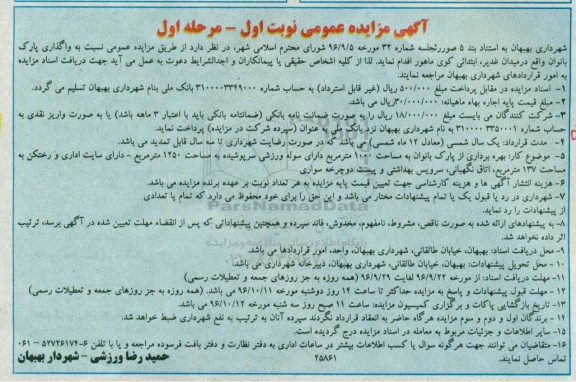 آگهی مزایده عمومی نوبت اول - مرحله اول
شهرداری بهبهان به استناد بند ۵ صورتجلسه شماره ۳۲ مورخه ۹۶/۹/۵ شورای محترم اسلامی شهر، در نظر دارد از طریق مزایده عمومی نسبت به واگذاری پارک
بانوان واقع درمیدان غدیر، ابتدائی کوی ماهور اقدام نماید. لذا از کلیه اشخاص حقیقی یا پیمانکاران و اجدالشرایط دعوت به عمل می آید جهت دریافت اسناد مزایده
به امور قراردادهای شهرداری بهبهان مراجعه نمایند.
۱- اسناد مزایده در مقابل پرداخت مبلغ ۵۰۰/۰۰۰ ریال (غیر قابل استرداد) به حساب شماره ۳۱۰۰۰۰۳۳۴۹۰۰۰ بانک ملی بنام شهرداری بهبهان تسلیم می گردد.
۲- مبلغ قیمت پایه اجاره بهاء ماهیانه: ۳۰/۰۰۰/۰۰۰ریال می باشد.
۳- شرکت کنندگان می بایست مبلغ ۱۸/۰۰۰/۰۰۰ ریال را به صورت ضمانت نامه بانکی (ضمانتنامه بانکی باید با اعتبار ۳ ماهه باشد) یا به صورت واریز نقدی به
حساب شماره ۳۱۰۰۰۰۳۳۵۰۰۰۱ به نام شهرداری بهبهان نزد بانک ملی به عنوان (سپرده شرکت در مزایده) پرداخت نماید.
۴- مدت قرارداد: یک سال شمسی (معادل ۱۲ ماه شمسی) می باشد که در صورت رضایت شهرداری تا سه سال قابل تمدید می باشد.
۵- موضوع کار: بهره برداری از پارک بانوان به مساحت ۱۰۰۰۰ مترمربع دارای سوله ورزشی سرپوشیده به مساحت ۱۲۵۰ مترمربع - دارای سایت اداری و رختکن به
مساحت ۱۳۷ مترمربع، اتاق نگهبانی، سرویس بهداشتی و پیست دوچرخه سواری
۶- هزینه انتشار آگهی ها و هزینه کارشناسی جهت تعیین قیمت پایه مزایده به هر تعداد نوبت بر عهده برنده مزایده می باشد.
۷- شهرداری در رد یا قبول یک یا تمام پیشنهادات مختار می باشد و این حق را برای خود محفوظ می دارد که تمام یا تعدادی
از پیشنهادات را رد نماید.
۸- به پیشنهادهای ارائه شده به صورت ناقص، مشروط، نامفهوم، مخدوش، فاند سپرده و همچنین پیشنهاداتی که پس از انقضاء مهلت تعیین شده در آگهی برسد، ترتیب
اثر داده نخواهد شد.
۹- محل دریافت اسناد: بهبهان، خیابان طالقانی، شهرداری بهبهان، واحد، امور قراردادها می باشد.
۱۰- محل تحویل پیشنهادات: بهبهان، خیابان طالقانی، شهرداری بهبهان، دبیرخانه شهرداری می باشد.
۱۱- مهلت دریافت اسناد: از مورخه ۹۶/۹/۲۲ لغایت ۹۶/۹/۲۹ (همه روزه به جز روزهای جمعه و تعطیلات رسمی)
۱۲- مهلت قبول پیشنهادات و پاسخ به مزایده حداکثر تا ساعت ۱۴ روز دوشنبه مورخه ۹۶/۱۰/۱۱ می باشد. (همه روزه به جز روزهای جمعه و تعطیلات رسمی)
۱۳- تاریخ بازگشایی پاکات و برگزاری کمیسیون مزایده: ساعت ۱۱ صبح روز سه شنبه مورخه ۹۶/۱۰/۱۲ می باشد.
۱۴- برندگان اول و دوم و سوم مزایده هرگاه حاضر به انعقاد قرارداد نگردند سپرده آنان به ترتیب به نفع شهرداری ضبط خواهد شد.
۱۵- سایر اطلاعات و جزئیات مربوط به معامله در اسناد مزایده درج گردیده است.
۱۶- متقاضیان می توانند جهت هرگونه سوال یا کسب اطلاعات بیشتر در ساعات اداری به دفتر نظارت و دفتر بافت فرسوده مراجعه و یا با تلفن ۶-۵۲۷۲۶۱۷۴-۰۶۱
تماس حاصل نمایند.
۲۵۸۶۱
حمید رضا ورزشی - شهردار بهبهان
ParsNamadData